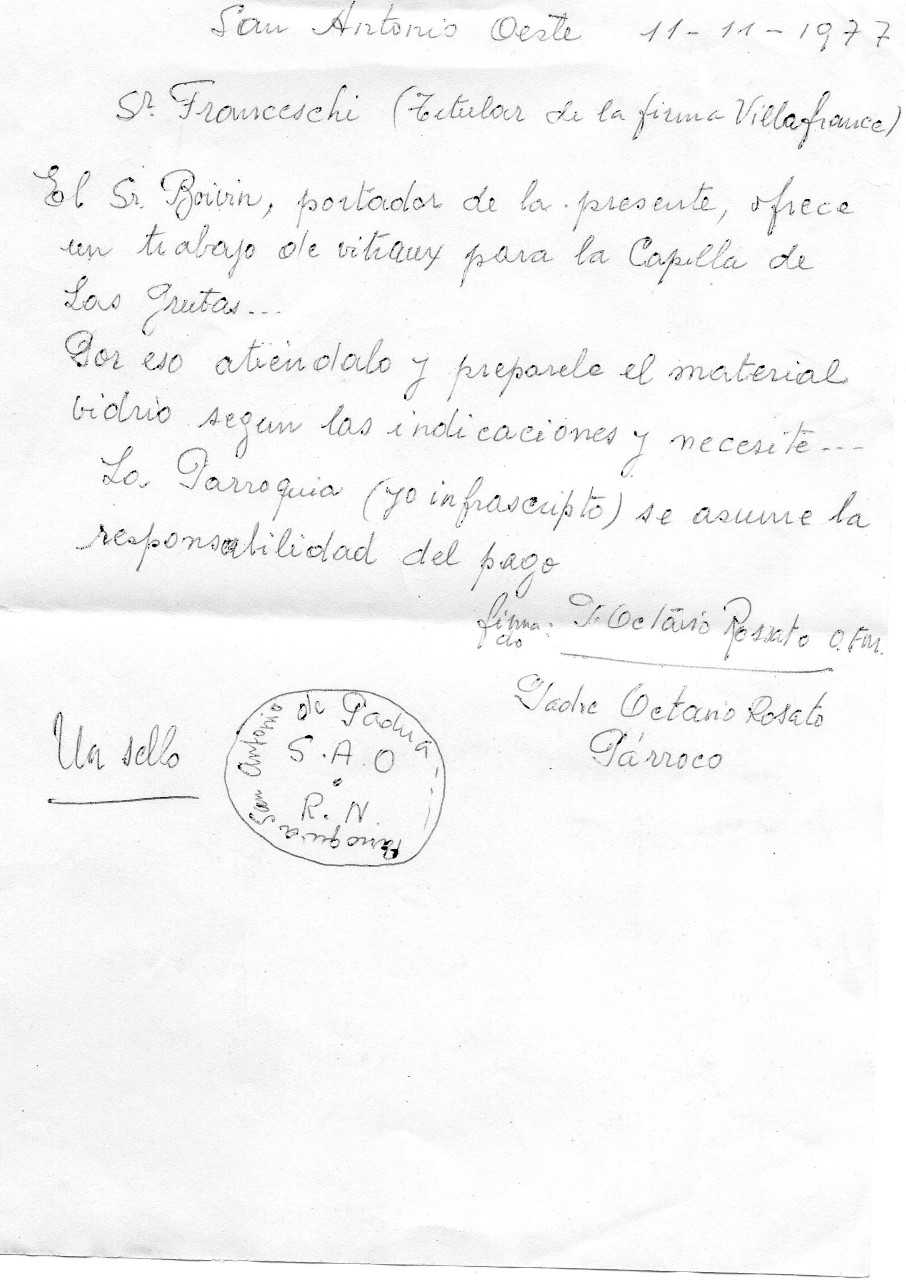 San Antonio Oeste 11-11-1977
Sr. Franceschi (Titular de la firma Villafrance)
El Sr. Boivin, portador de la presente, ofrece
un trabajo de vitraux para la Capilla de
Las Grutas...
Por eso atiéndalo y preparele el material
vidrio segun las indicaciones y necesite...
La Parroquia (yo infrascripto) se asume la
responsabilidad del pago
firma: P. Octavio Rossato O.F.M.
do
Padre Octavio Rosato
Párroco
Un sello
Parroquia San Antonio de Padua
S.A.O
R.N.